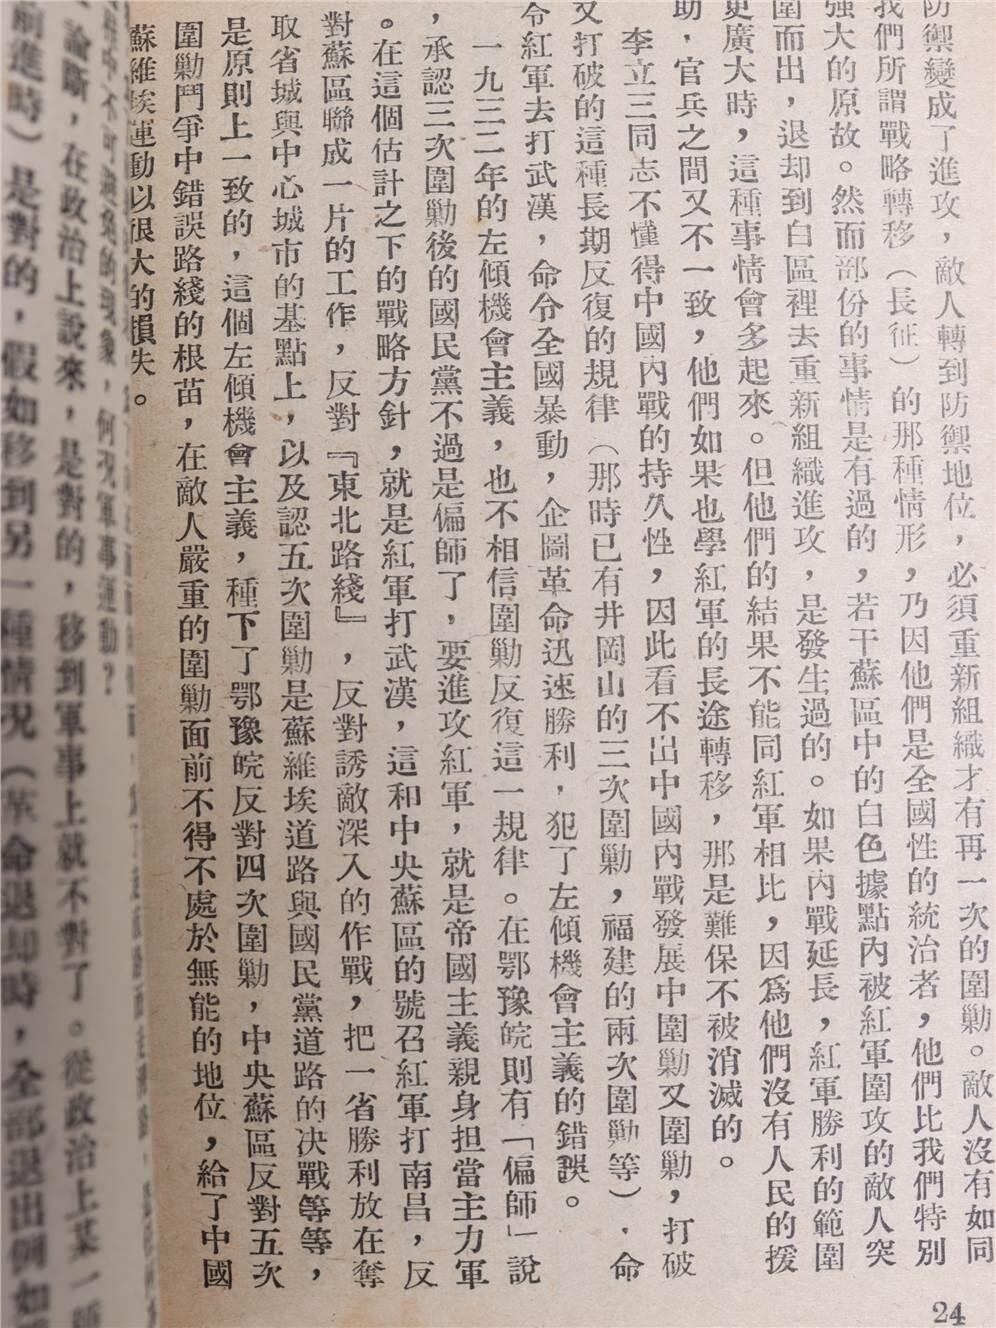 防禦變成了進攻，敵人轉到防禦地位，必須重新組織才有再一次的圍勦。敵人沒有如同
我們所謂戰略轉移（長征）的那種情形，乃因他們是全國性的統治者，他們比我們特別
強大的原故。然而部份的事情是有過的，若干蘇區中的白色據點內被紅軍圍攻的敵人突
圍而出，退却到白區裡去重新組織進攻，是發生過的。如果內戰延長，紅軍勝利的範圍
更廣大時，這種事情會多起來。但他們的結果不能同紅軍相比，因爲他們沒有人民的援
助，官兵之間又不一致，他們如果也學紅軍的長途轉移，那是難保不被消滅的。
李立三同志不懂得中國內戰的持久性，因此看不出中國內戰發展中圍勦又圍勦，打破
又打破的這種長期反復的規律（那時已有井岡山的三次圍勦，福建的兩次圍勦等）．命
令紅軍去打武漢，命令全國暴動，企圖革命迅速勝利，犯了左傾機會主義的錯誤。
一九三二年的左傾機會主義，也不相信圍勦反復這一規律。在鄂豫皖則有「偏師」說
，承認三次圍勦後的國民黨不過是偏師了，要進攻紅軍，就是帝國主義親身担當主力軍
。在這個估計之下的戰略方針，就是紅軍打武漢，這和中央蘇區的號召紅軍打南昌，反
對蘇區聯成一片的工作，反對『東北路綫』，反對誘敵深入的作戰，把一省勝利放在奪
取省城與中心城市的基點上，以及認五次圍勦是蘇維埃道路與國民黨道路的决戰等等，
是原則上一致的，這個左傾機會主義，種下了鄂豫皖反對四次圍勦，中央蘇區反對五次
圍勦鬥爭中錯誤路綫的根苗，在敵人嚴重的圍勦面前不得不處於無能的地位，給了中國
蘇維埃運動以很大的損失。
24
中不可避免的現象，何况軍事運動？
論斷，在政治上說來，是對的，移到軍事上就不對了。從政治上某一
前進時）是對的，假如移到另一種情况（革命退却時，全部退出例如